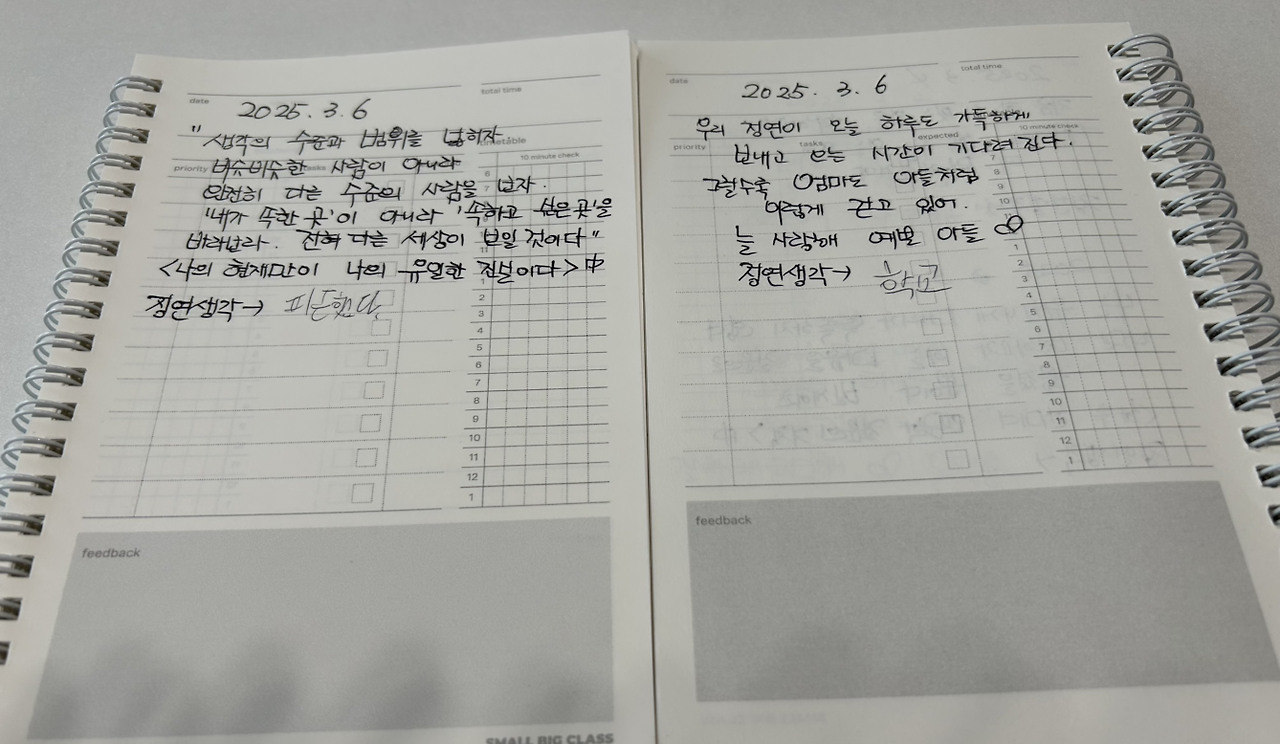 date
total time
2025. 3. 6
"생각의 수준과 범위를 넓히자
timetable
priority
tasks
10 minute check
비슷비슷한 사람이 아니라
완전히 다른 수준의 사람을 만나자.
'내가 속한 곳'이 아니라 '속하고 싶은 곳'을
바라보라. 전혀 다른 세상이 보일 것이다"
<나의 현재만이 나의 유일한 진실이다> 中
정연생각→ 피곤했다.
6
7
1
2
3
4
5
6
7
8
9
10
11
12
1
feedback
SMALL BIG CLASS
date
total time
2025. 3. 6
우리 정연이 오늘 하루도 가득하게
priority
tasks
expected
10 minute check
보내고 오는 시간이 기다려 진다.
그럴수록 엄마도 아들처럼
이렇게 걷고 있어.
늘 사랑해 예쁜 아들
정연생각→ 학교
7
8
9
10
1
2
3
4
5
6
7
8
9
10
11
12
1
feedback